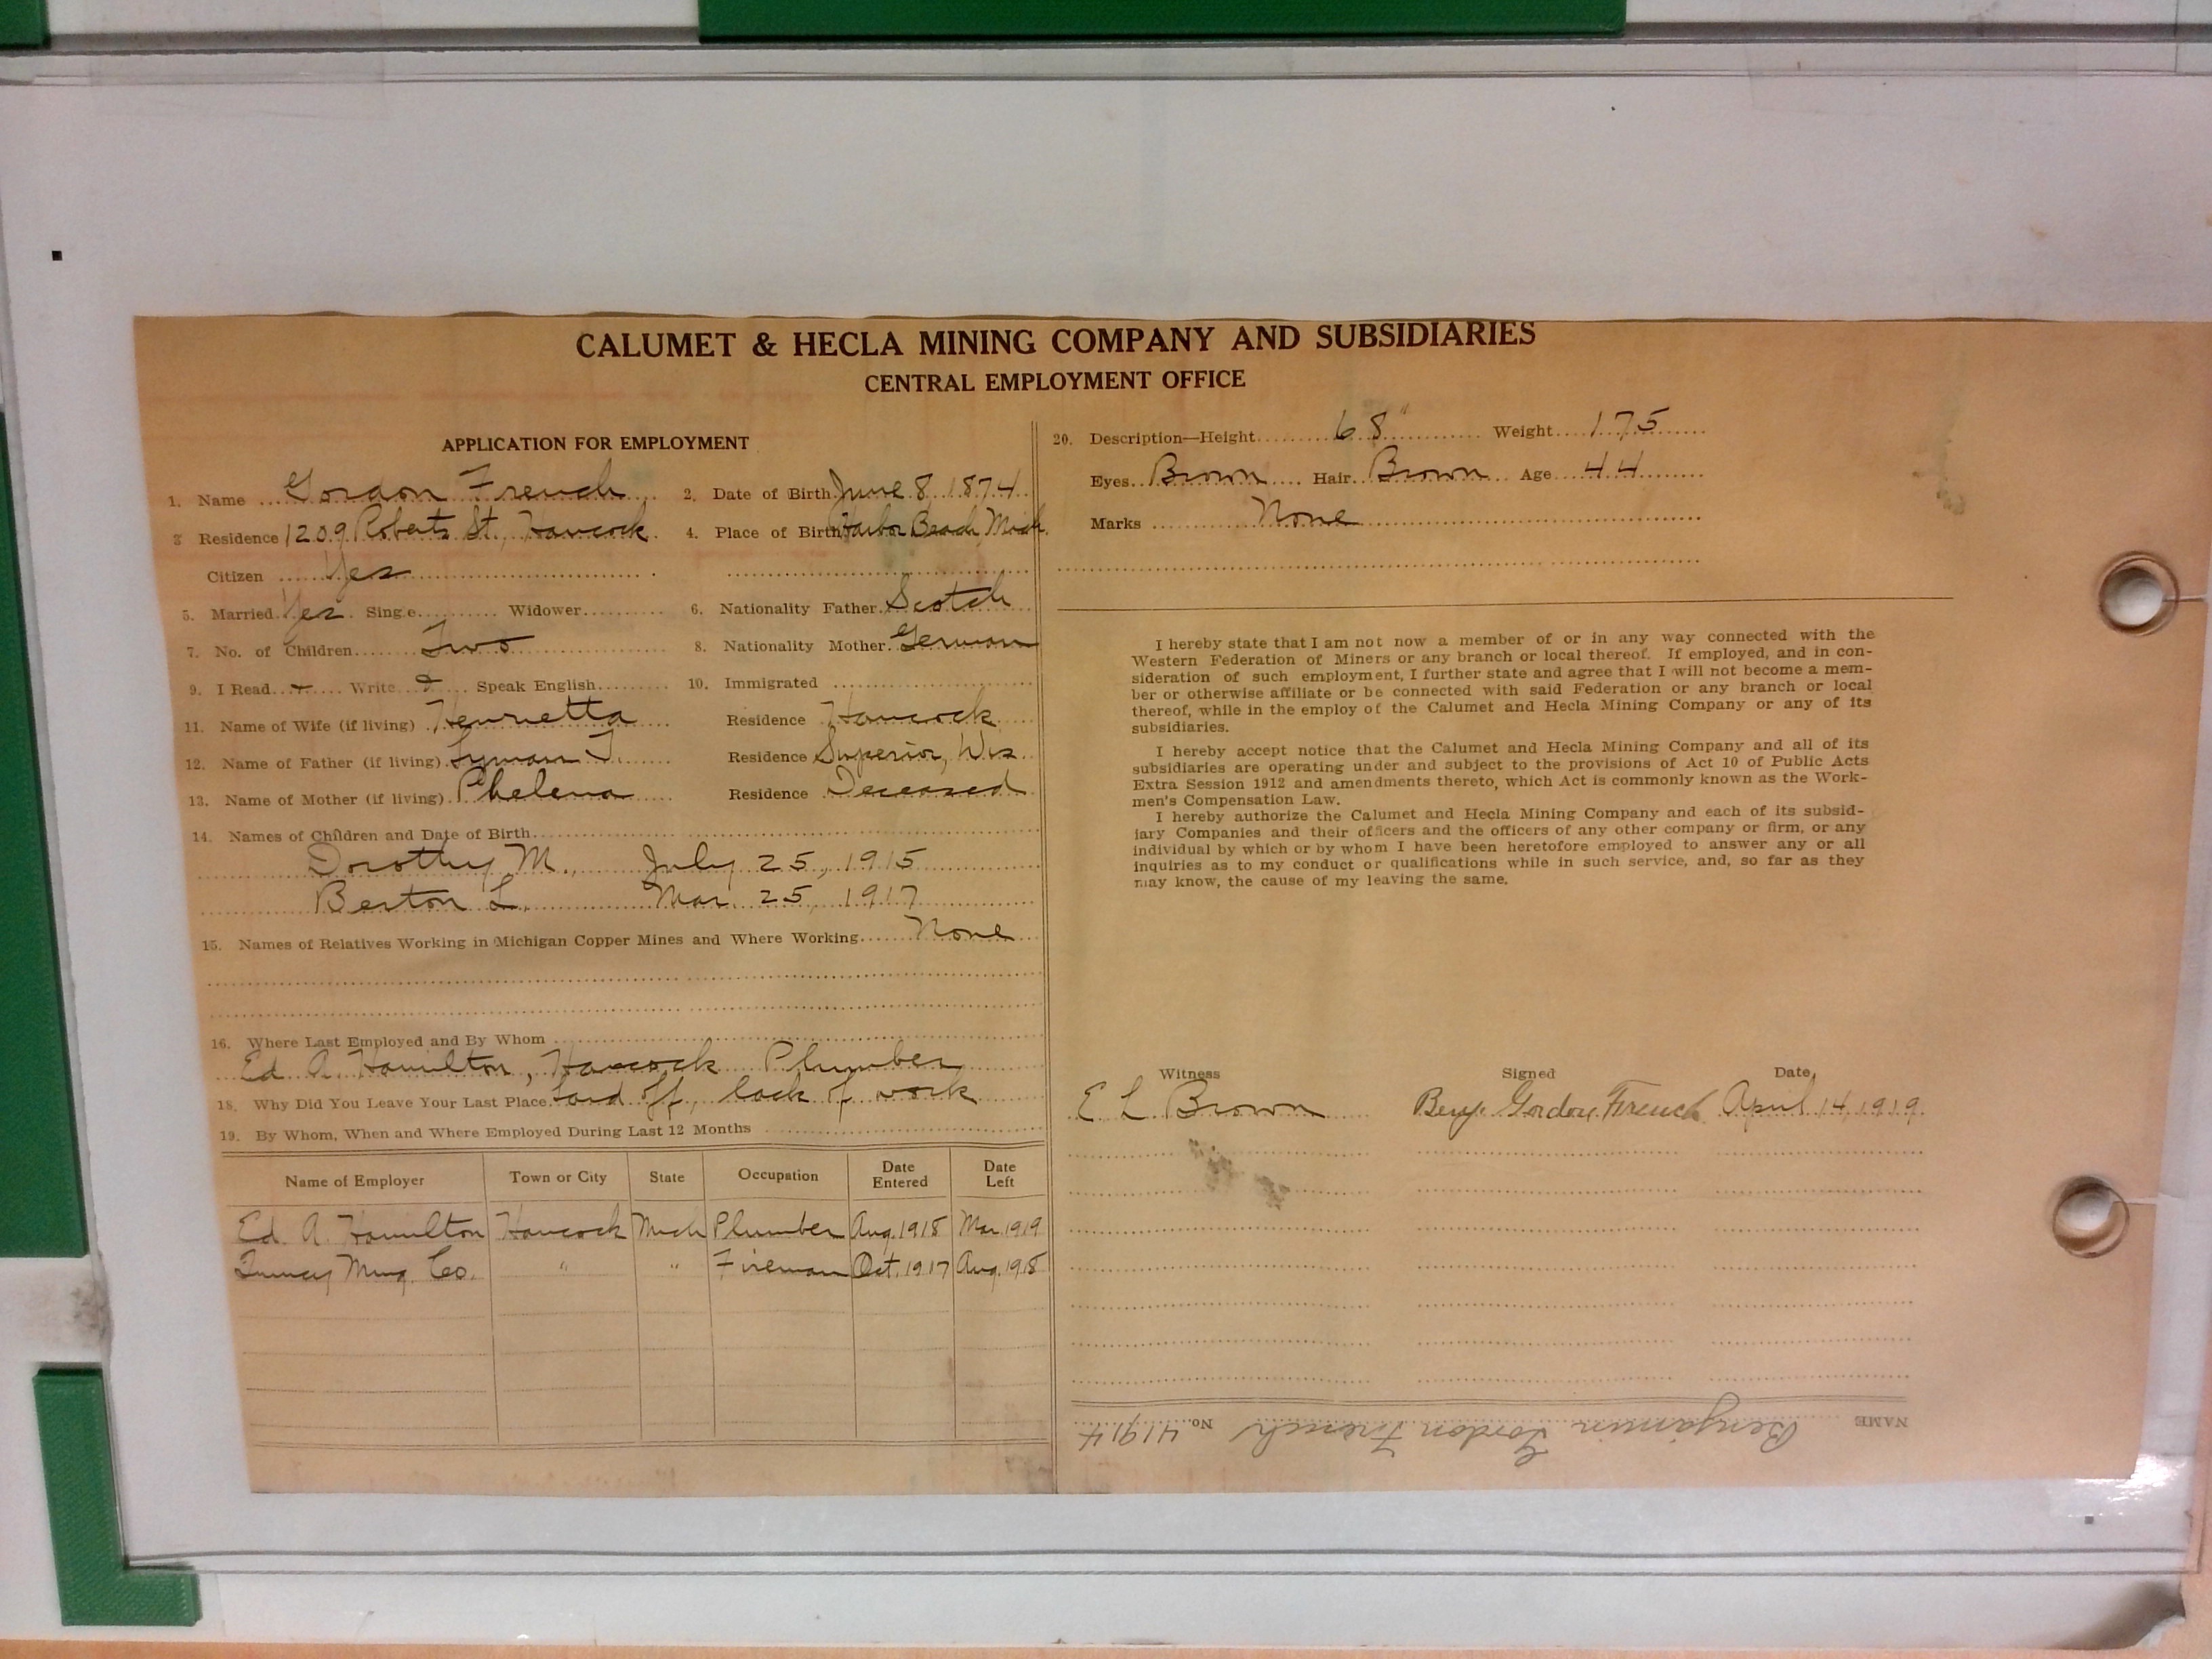 CALUMET & HECLA MINING COMPANY AND SUBSIDIARIES
CENTRAL EMPLOYMENT OFFICE
APPLICATION FOR EMPLOYMENT
1. Name Gordon French 2. Date of Birth June 8 1874
3 Residence 1209 Roberts St., Hancock 4. Place of Birth Harbor Beach, Mich.
Citizen Yes
5. Married Yes Sing e Widower 6. Nationality Father Scotch
7. No. of Children Two 8. Nationality Mother German
9. I Read Write Speak English 10. Immigrated
11. Name of Wife (if living) Henrietta Residence Hancock
12. Name of Father (if living) Lyman T. Residence Superior, Wis.
13. Name of Mother (if living) Phelena Residence Deceased
14. Names of Children and Date of Birth
Dorothy M., July 25, 1915
Berton L. Mar. 25, 1917
15. Names of Relatives Working in Michigan Copper Mines and Where Working None
16. Where Last Employed and By Whom
Ed A. Hamilton, Hancock Plumber
18. Why Did You Leave Your Last Place off, lack of work
19. By Whom, When and Where Employed During Last 12 Months
Name of Employer Town or City State Occupation Date Entered Date Left
Ed. A. Hamilton Hancock Mich Plumber Aug. 1918 Mar. 1919
Quincy Mng. Co. " " Fireman Oct. 1917 Aug. 1918
20. Description—Height 68" Weight 175
Eyes Brown Hair Brown Age 44
Marks None
I hereby state that I am not now a member of or in any way connected with the
Western Federation of Miners or any branch or local thereof. If employed, and in con-
sideration of such employment, I further state and agree that I will not become a mem-
ber or otherwise affiliate or be connected with said Federation or any branch or local
thereof, while in the employ of the Calumet and Hecla Mining Company or any of its
subsidiaries.
I hereby accept notice that the Calumet and Hecla Mining Company and all of its
subsidiaries are operating under and subject to the provisions of Act 10 of Public Acts
Extra Session 1912 and amendments thereto, which Act is commonly known as the Work-
men's Compensation Law.
I hereby authorize the Calumet and Hecla Mining Company and each of its subsid-
iary Companies and their officers and the officers of any other company or firm, or any
individual by which or by whom I have been heretofore employed to answer any or all
inquiries as to my conduct or qualifications while in such service, and, so far as they
may know, the cause of my leaving the same.
Witness Signed Date
E L Brown Benj. Gordon French April 14 1919
NAME Benjamin Gordon French No. 41914